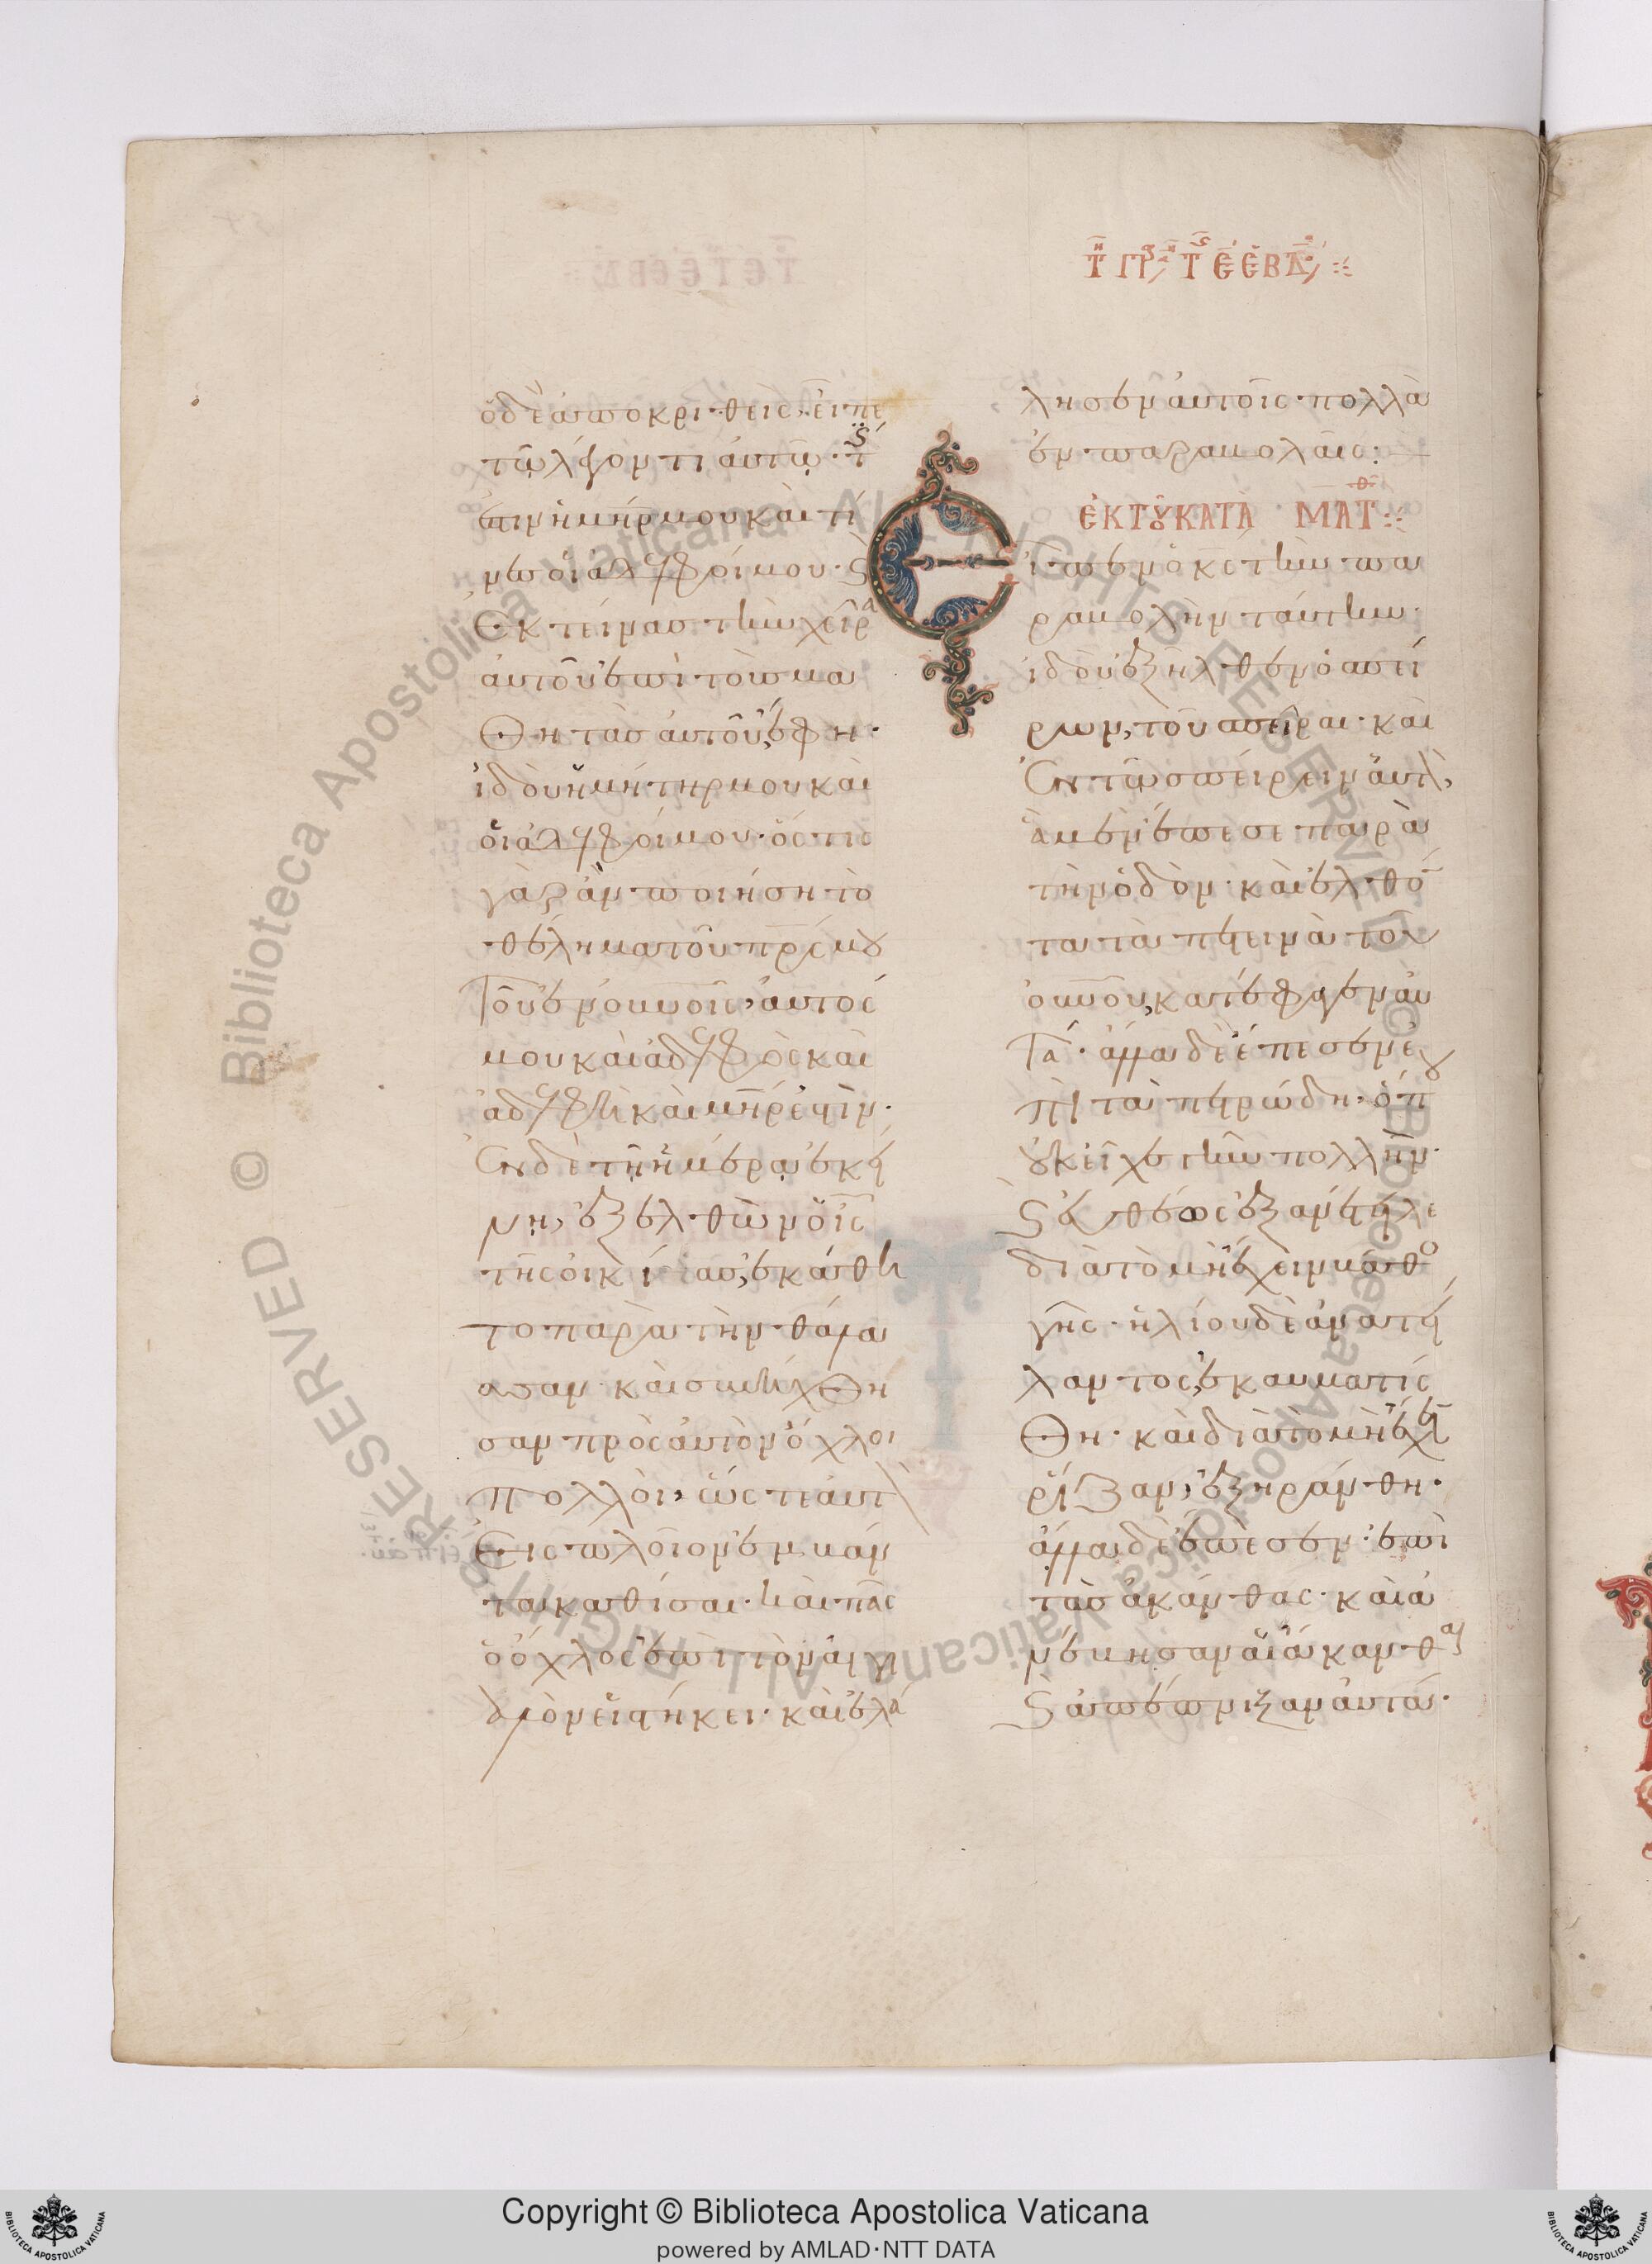 ὁ δὲ ἀποκριθεὶς, εἶπε
τῷ λέγοντι αὐτῷ· τίς
ἐστιν ἡ μήρ μου καὶ τί
νες οἱ ἀδελφοί μου· καὶ
ἐκτείνας τὴν χεῖρα
αὐτοῦ ἐπὶ τοὺς μα
θητὰς αὐτοῦ, ἔφη·
ἰδοὺ ἡ μήτηρ μου καὶ
οἱ ἀδελφοί μου· ὅστις
γὰρ ἂν ποιήσῃ τὸ
θέλημα τοῦ πρς μου
τοῦ ἐν οὐνοῖς, αὐτός
μου καὶ ἀδελφὸς καὶ
ἀδελφὴ καὶ μηρ ἐστίν·
Ἐν δὲ τῇ ἡμέρᾳ ἐκεί
νῃ, ἐξελθὼν ὁ ις
τῆς οἰκίας, ἐκάθη
το παρὰ τὴν θάλα
σσαν· καὶ συνήχθη
σαν πρὸς αὐτὸν ὄχλοι
πολλοὶ, ὥστε αὐτ
εἰς πλοῖον ἐμβάν
τα καθίσαι· καὶ πᾶς
ὁ ὄχλος ἐπὶ τὸν αἰγι
αλὸν εἱστήκει· καὶ ἐλά
ΕΒΔ
λησεν αὐτοῖς πολλὰ
ἐν παραβολαῖς:
ἘΚ ΤΟΥ ΚΑΤᾺ ΜΑΤΘ
Εἶπεν ὁ κς τὴν πα
ραβολὴν ταύτην·
ἰδοὺ ἐξῆλθεν ὁ σπεί
ρων, τοῦ σπεῖραι· καὶ
ἐν τῷ σπείρειν αὐτὸν,
ἃ μὲν ἔπεσε παρὰ
τὴν ὁδόν· καὶ ἐλθόν
τα τὰ πετεινὰ τοῦ
οὐνου, κατέφαγεν αὐ
τά· ἄλλα δὲ ἔπεσεν ἐ
πὶ τὰ πετρώδη· ὅπου
οὐκ εἶχε γῆν πολλήν·
καὶ εὐθέως ἐξανέτειλε
διὰ τὸ μὴ ἔχειν βάθο
γῆς· ἡλίου δὲ ἀνατεί
λαντος, ἐκαυματίσ
θη· καὶ διὰ τὸ μὴ ἔχειν
ῥίζαν, ἐξηράνθη·
ἄλλα δὲ ἔπεσεν ἐπὶ
τὰς ἀκάνθας· καὶ ἀ
νέβησαν αἱ ἄκανθαι
καὶ ἀπέπνιξαν αὐτά·
Copyright © Biblioteca Apostolica Vaticana
powered by AMLAD·NTT DATA